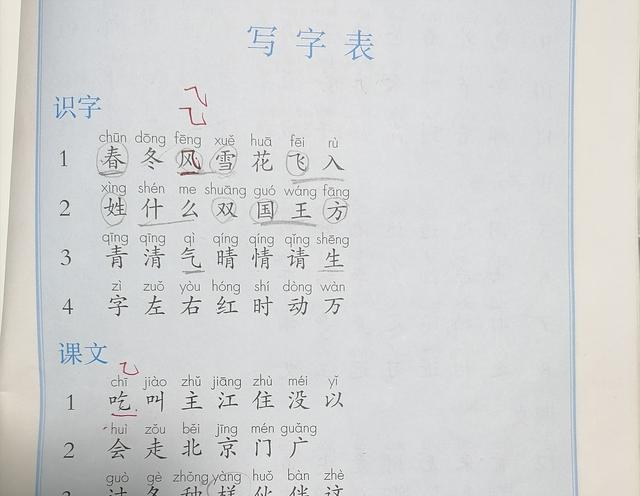 写字表
识字
chūn dōng fēng xuě huā fēi rù
1 春 冬 风 雪 花 飞 入
xìng shén me shuāng guó wáng fāng
2 姓 什 么 双 国 王 方
qīng qīng qì qíng qíng qǐng shēng
3 青 清 气 晴 情 请 生
zì zuǒ yòu hóng shí dòng wàn
4 字 左 右 红 时 动 万
课文
chī jiào zhǔ jiāng zhù méi yǐ
1 吃 叫 主 江 住 没 以
huì zǒu běi jīng mén guǎng
2 会 走 北 京 门 广
guò gè zhǒng yàng huǒ bàn zhè
3 过 各 种 样 伙 伴 这